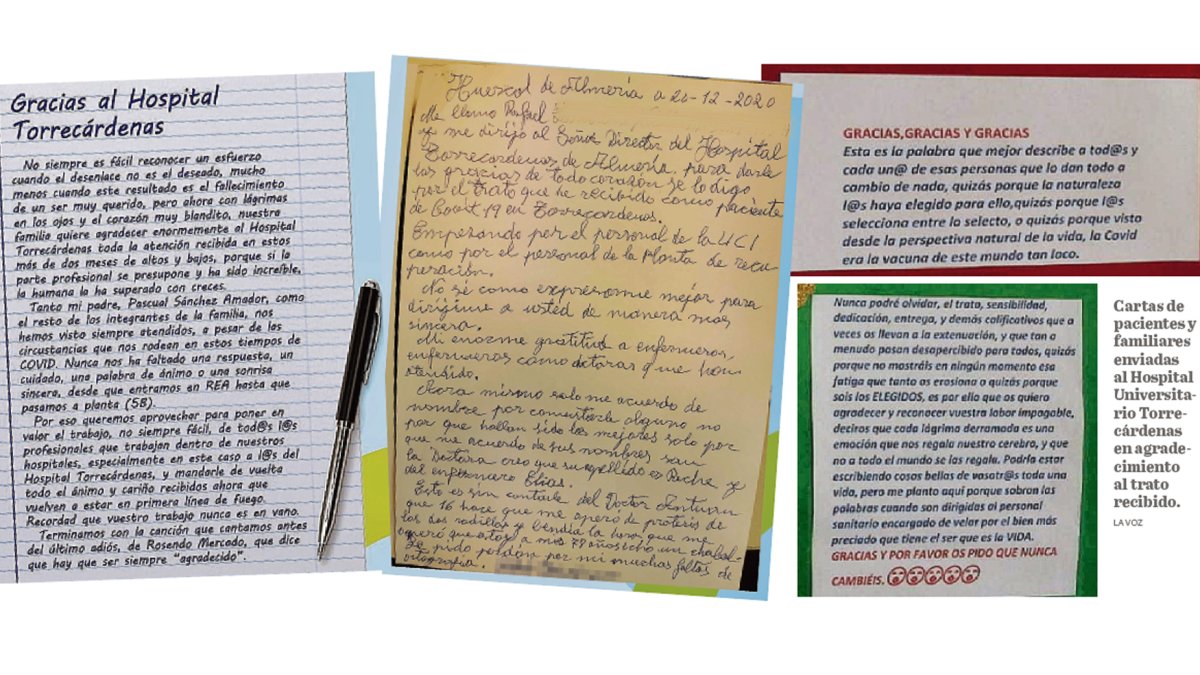 Gracias al Hospital
Torrecárdenas
No siempre es fácil reconocer un esfuerzo
cuando el desenlace no es el deseado, mucho
menos cuando este resultado es el fallecimiento
de un ser muy querido, pero ahora con lágrimas
en los ojos y el corazón muy blandito, nuestra
familia quiere agradecer enormemente al Hospital
Torrecárdenas toda la atención recibida en estos
más de dos meses de altos y bajos, porque si la
parte profesional se presupone y ha sido increíble,
la humana la ha superado con creces.
Tanto mi padre, Pascual Sánchez Amador, como
el resto de los integrantes de la familia, nos
hemos visto siempre atendidos, a pesar de las
circustancias que nos rodean en estos tiempos de
COVID. Nunca nos ha faltado una respuesta, un
cuidado, una palabra de ánimo o una sonrisa
sincera, desde que entramos en REA hasta que
pasamos a planta (5B).
Por eso queremos aprovechar para poner en
valor el trabajo, no siempre fácil, de tod@s l@s
profesionales que trabajan dentro de nuestros
hospitales, especialmente en este caso a l@s del
Hospital Torrecárdenas, y mandarle de vuelta
todo el ánimo y cariño recibidos ahora que
vuelven a estar en primera línea de fuego.
Recordad que vuestro trabajo nunca es en vano.
Terminamos con la canción que cantamos antes
del último adiós, de Rosendo Mercado, que dice
que hay que ser siempre "agradecido".
Huercal de Almería a 20-12-2020
Me llamo Rafael
y me dirijo al Señor Director del Hospital
Torrecardenas de Almería, para darle
las gracias de todo corazón se lo digo
por el trato que he recibido como paciente
de Covit 19 en Torrecardenas.
Empesando por el personal de la UCI
como por el personal de la Planta de recu
peración.
No sé como expresarme mejor para
dirigirme a usted de manera mas
sincera.
Mi enorme gratitud a enfermeros,
enfermeras como dotoras que me han
atendido.
Ahora mismo solo me acuerdo de
nombre por comentarle alguno no
por que hallan sido los mejores solo por
que me acuerdo de sus nombres san
la Doctora creo que su apellido es Roche y
del enfermero Elias.
Esto es sin contarle del Doctor
que 16 hace que me operó de protesis de
las dos rodillas y bendita la hora que me
operó que estoy a mis 79 años echo un chabal
Le pido perdone por mi muchas faltas de
ortografia.
GRACIAS,GRACIAS Y GRACIAS
Esta es la palabra que mejor describe a tod@s y
cada un@ de esas personas que lo dan todo a
cambio de nada, quizás porque la naturaleza
l@s haya elegido para ello,quizás porque l@s
selecciona entre lo selecto, o quizás porque visto
desde la perspectiva natural de la vida, la Covid
era la vacuna de este mundo tan loco.
Nunca podré olvidar, el trato, sensibilidad,
dedicación, entrega, y demás calificativos que a
veces os llevan a la extenuación, y que tan a
menudo pasan desapercibido para todos, quizás
porque no mostráis en ningún momento esa
fatiga que tanto os erosiona o quizás porque
sois los ELEGIDOS, es por ello que os quiero
agradecer y reconocer vuestra labor impagable,
deciros que cada lágrima derramada es una
emoción que nos regala nuestro cerebro, y que
no a todo el mundo se las regala. Podría estar
escribiendo cosas bellas de vosotr@s toda una
vida, pero me planto aquí porque sobran las
palabras cuando son dirigidas al personal
sanitario encargado de velar por el bien más
preciado que tiene el ser que es la VIDA.
GRACIAS Y POR FAVOR OS PIDO QUE NUNCA
CAMBIÉIS.
Cartas de
pacientes y
familiares
enviadas
al Hospital
Universita-
rio Torre-
cárdenas
en agrade-
cimiento
al trato
recibido.
LA VOZ